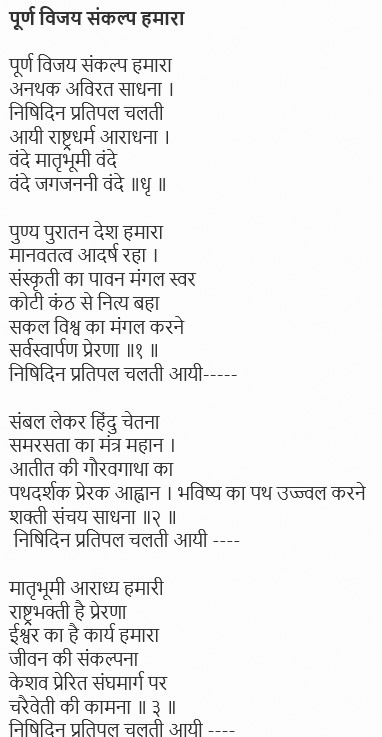 पूर्ण विजय संकल्प हमारा
पूर्ण विजय संकल्प हमारा
अनथक अविरत साधना ।
निषिदिन प्रतिपल चलती
आयी राष्ट्रधर्म आराधना ।
वंदे मातृभूमी वंदे
वंदे जगजननी वंदे ॥धृ ॥
पुण्य पुरातन देश हमारा
मानवतत्व आदर्ष रहा ।
संस्कृती का पावन मंगल स्वर
कोटी कंठ से नित्य बहा
सकल विश्व का मंगल करने
सर्वस्वार्पण प्रेरणा ॥१ ॥
निषिदिन प्रतिपल चलती आयी-----
संबल लेकर हिंदु चेतना
समरसता का मंत्र महान ।
आतीत की गौरवगाथा का
पथदर्शक प्रेरक आह्वान । भविष्य का पथ उज्ज्वल करने
शक्ती संचय साधना ॥२ ॥
निषिदिन प्रतिपल चलती आयी ----
मातृभूमी आराध्य हमारी
राष्ट्रभक्ती है प्रेरणा
ईश्वर का है कार्य हमारा
जीवन की संकल्पना
केशव प्रेरित संघमार्ग पर
चरैवेती की कामना ॥ ३ ॥
निषिदिन प्रतिपल चलती आयी ----